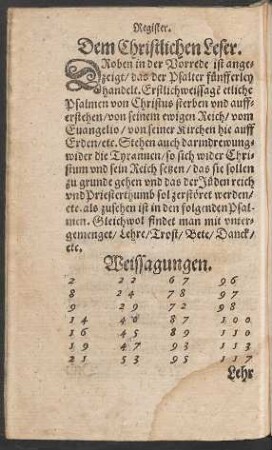 Register.
Dem Christlichen Leser.
DRoben in der Vorrede ist ange-
zeigt/das der Psalter fünfferley
handelt. Erstlich weissagē etliche
Psalmen von Christus sterben vnd auff-
erstehen/von seinem ewigen Reich/vom
Euangelio/von seiner Kirchen hie auff
Erden/etc. Stehen auch darin drewung-
wider die Tyrannen/so sich wider Chri-
stum vnd sein Reich setzen/das sie sollen
zu grunde gehen vnd das der Jüden reich
vnd Priesterthumb sol zerstöret werden/
etc. als zusehen ist in den folgenden Psal-
men. Gleichwol findet man mit vnter-
gemenget/Lehre/Trost/Bete/Danck/
etc.
Weissagungen.
2 22 67 96
8 24 78 97
9 29 72 98
14 40 87 110
16 45 89 110
19 47 93 113
21 53 95 117
Lehr